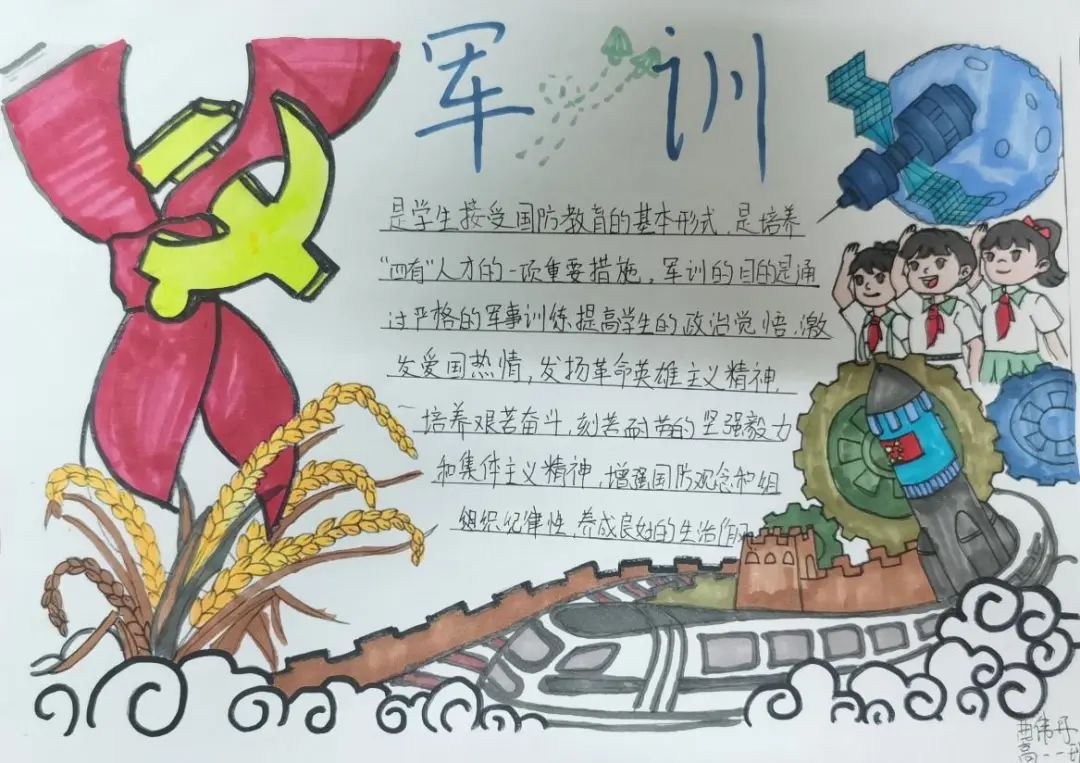 军训
是学生接受国防教育的基本形式,是培养
"四有"人才的一项重要措施,军训的目的是通
过严格的军事训练提高学生的政治觉悟,激
发爱国热情,发扬革命英雄主义精神,
培养艰苦奋斗,刻苦耐劳的坚强毅力
和集体主义精神,增强国防观念和组
组织纪律性,养成良好的生活作风
高一